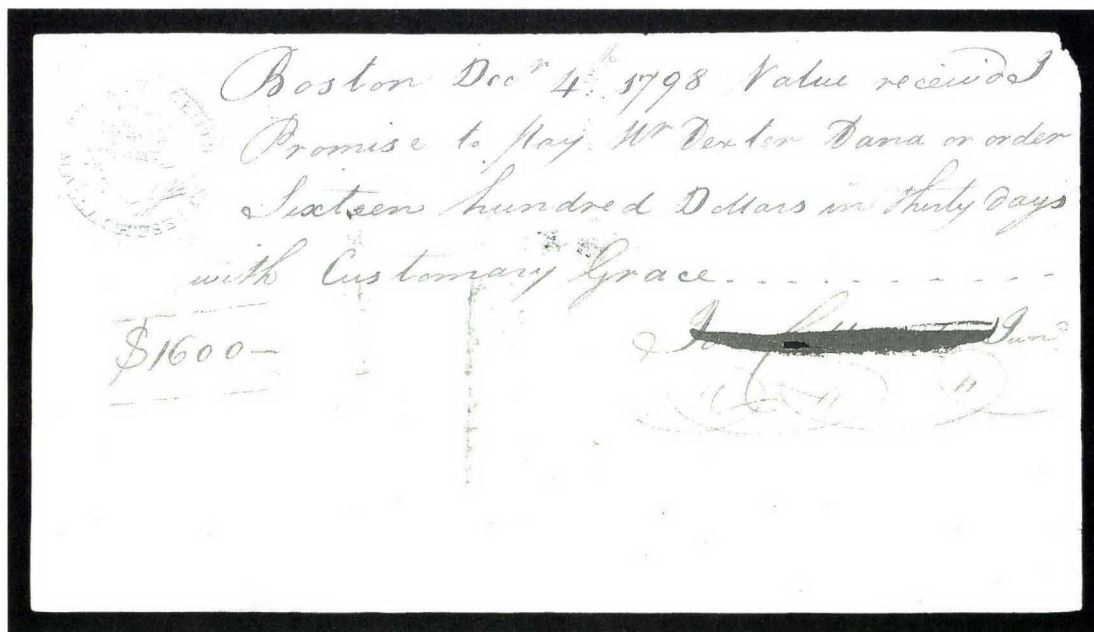 Boston Decr 4th 1798 Value received I
Promise to pay Mr Dexter Dana or order
Sixteen hundred Dollars in thirty days
with Customary Grace
$1600—
Junr